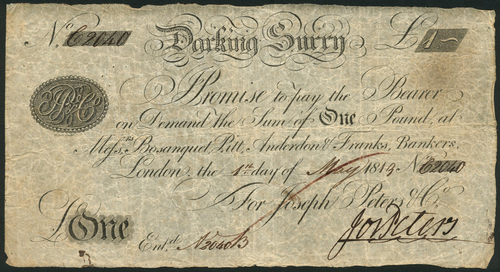 No. C2040 Darking Surry £1
I Promise to pay the Bearer
on Demand the Sum of One Pound, at
Messrs. Bosanquet Pitt, Anderdon & Franks, Bankers,
London, the 1st day of May 1814 No. C2040
For Joseph Peters & Co.
£One Jos. Peters
Entd. No 2040